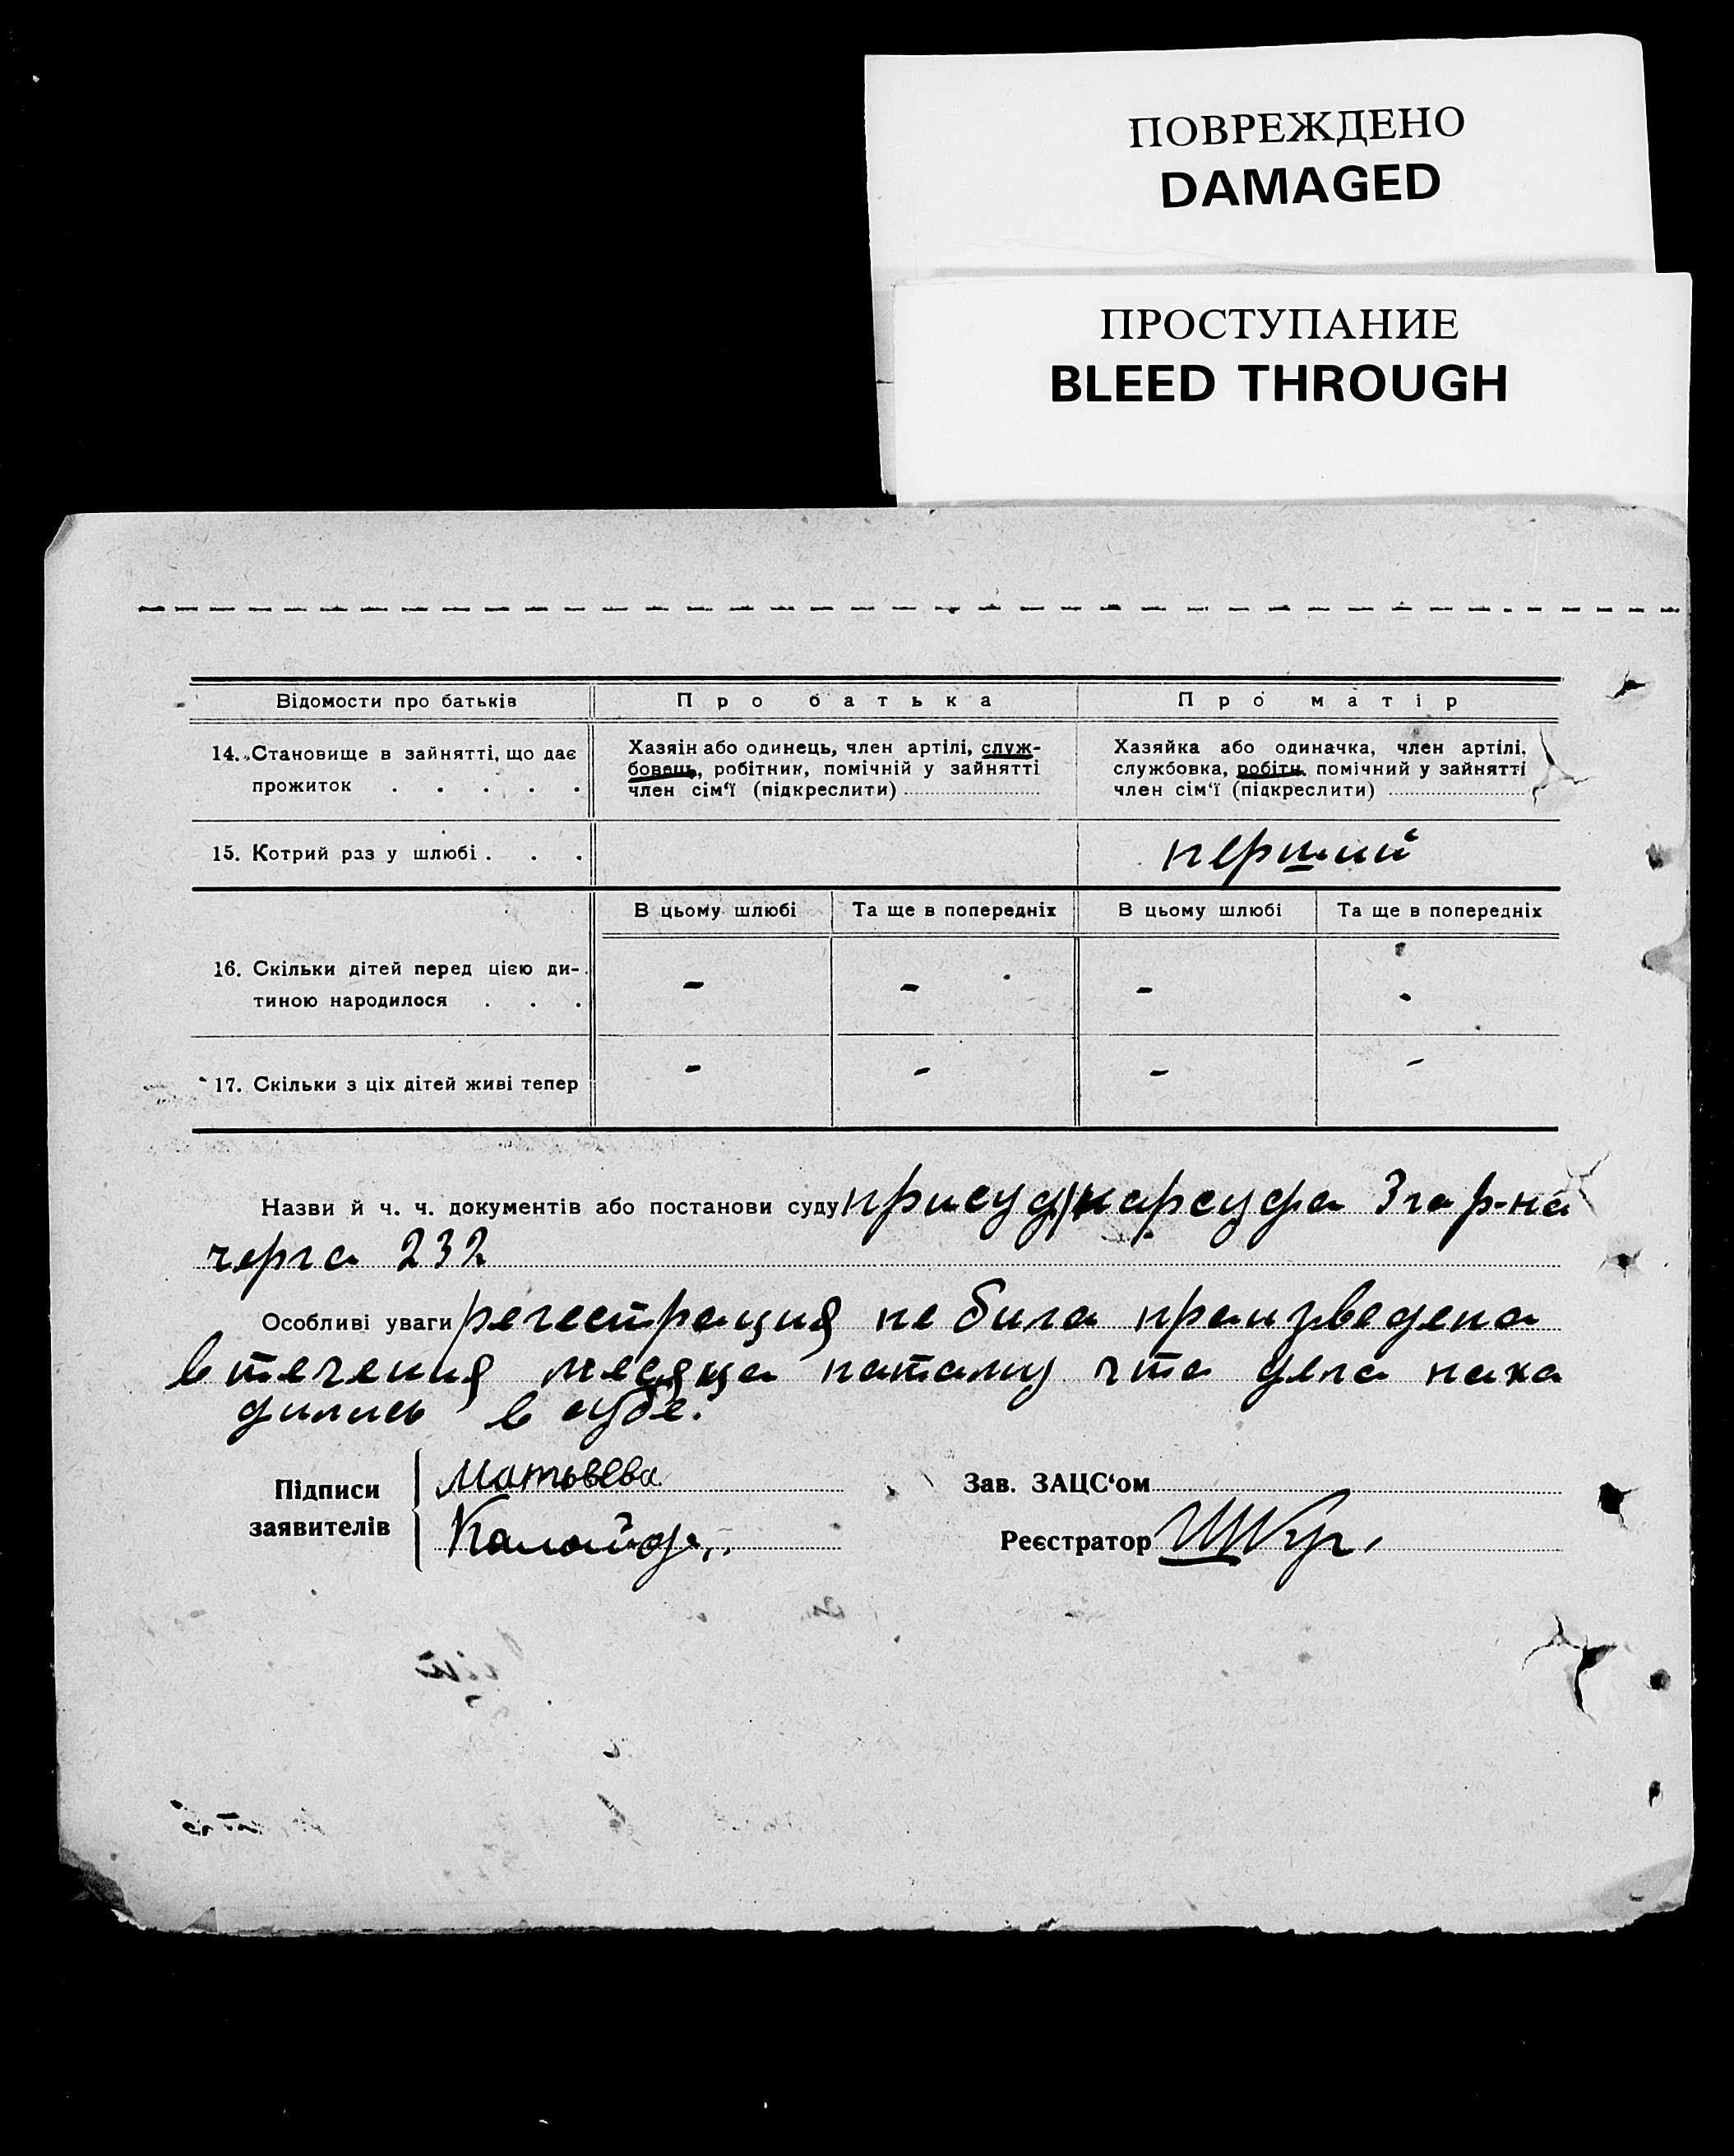 ПОВРЕЖДЕНО
DAMAGED
ПРОСТУПАНИЕ
BLEED THROUGH
Відомости про батьків
Про батька
Про матір
14. Становище в зайнятті, що дає
прожиток . . . . .
Хазяін або одинець, член артілі, служ-
бовець, робітник, помічній у зайнятті
член сім'ї (підкреслити)
Хазяйка або одиначка, член артілі,
службовка, робітн. помічний у зайнятті
член сім'ї (підкреслити)
15. Котрий раз у шлюбі . . .
перший
В цьому шлюбі
Та ще в попередніх
В цьому шлюбі
Та ще в попередніх
16. Скільки дітей перед цією ди-
тиною народилося . . .
- - - -
17. Скільки з ціх дітей живі тепер
- - - -
Назви й ч. ч. документів або постанови суду присуд нарсуда 3го р-на
черга 232
Особливі уваги регестрация не била праизведена
в течения месяца патаму что дела нахо
дились в суде.
Підписи
заявителів
Матьвева
Зав. ЗАЦС'ом
Реєстратор